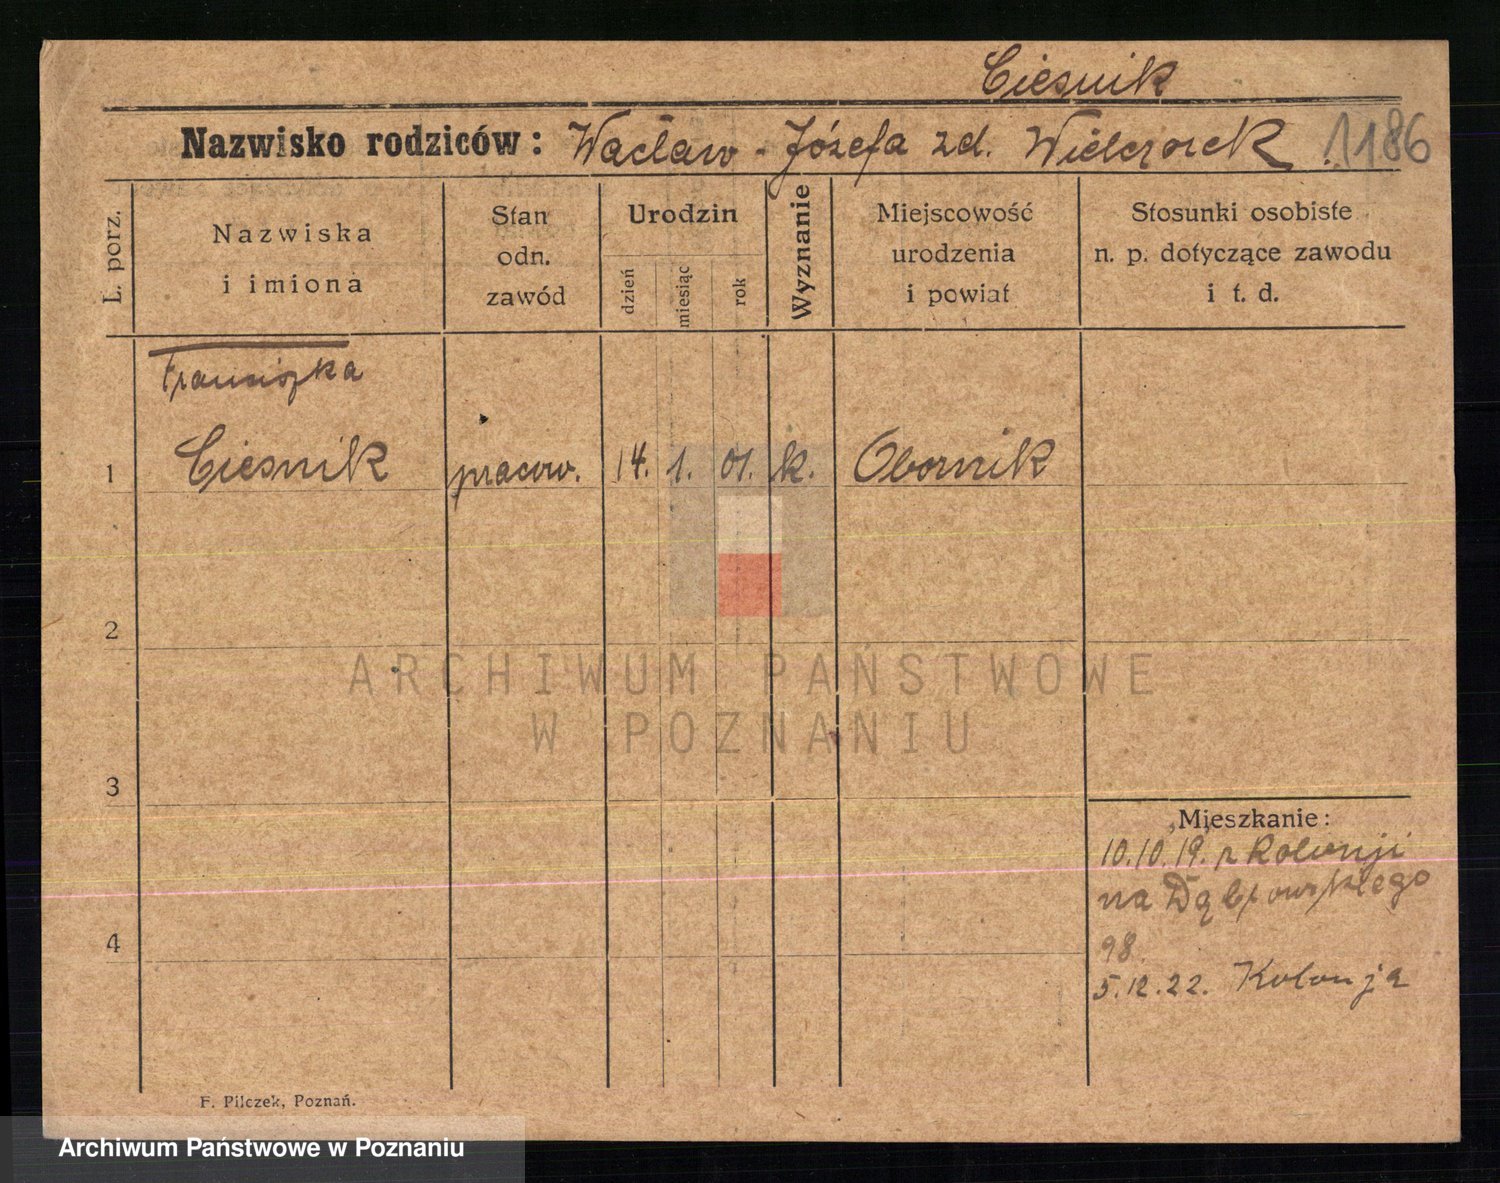 Ciesnik
Nazwisko rodziców: Wacław - Józefa zd. Wieczorek. 1186
L. porz.
Nazwiska
i imiona
Stan
odn.
zawód
Urodzin
dzień
miesiąc
rok
Wyznanie
Miejscowość
urodzenia
i powiat
Stosunki osobiste
n. p. dotyczące zawodu
i t. d.
Franciszka
1 Ciesnik pracow. 14. 1. 01. k. Obornik
2
ARCHIWUM PAŃSTWOWE
W POZNANIU
3
Mieszkanie:
10.10.19. z Kolonji
na Dąbrowskiego
4 98.
5.12.22. Kolonja
F. Pilczek, Poznań.
Archiwum Państwowe w Poznaniu